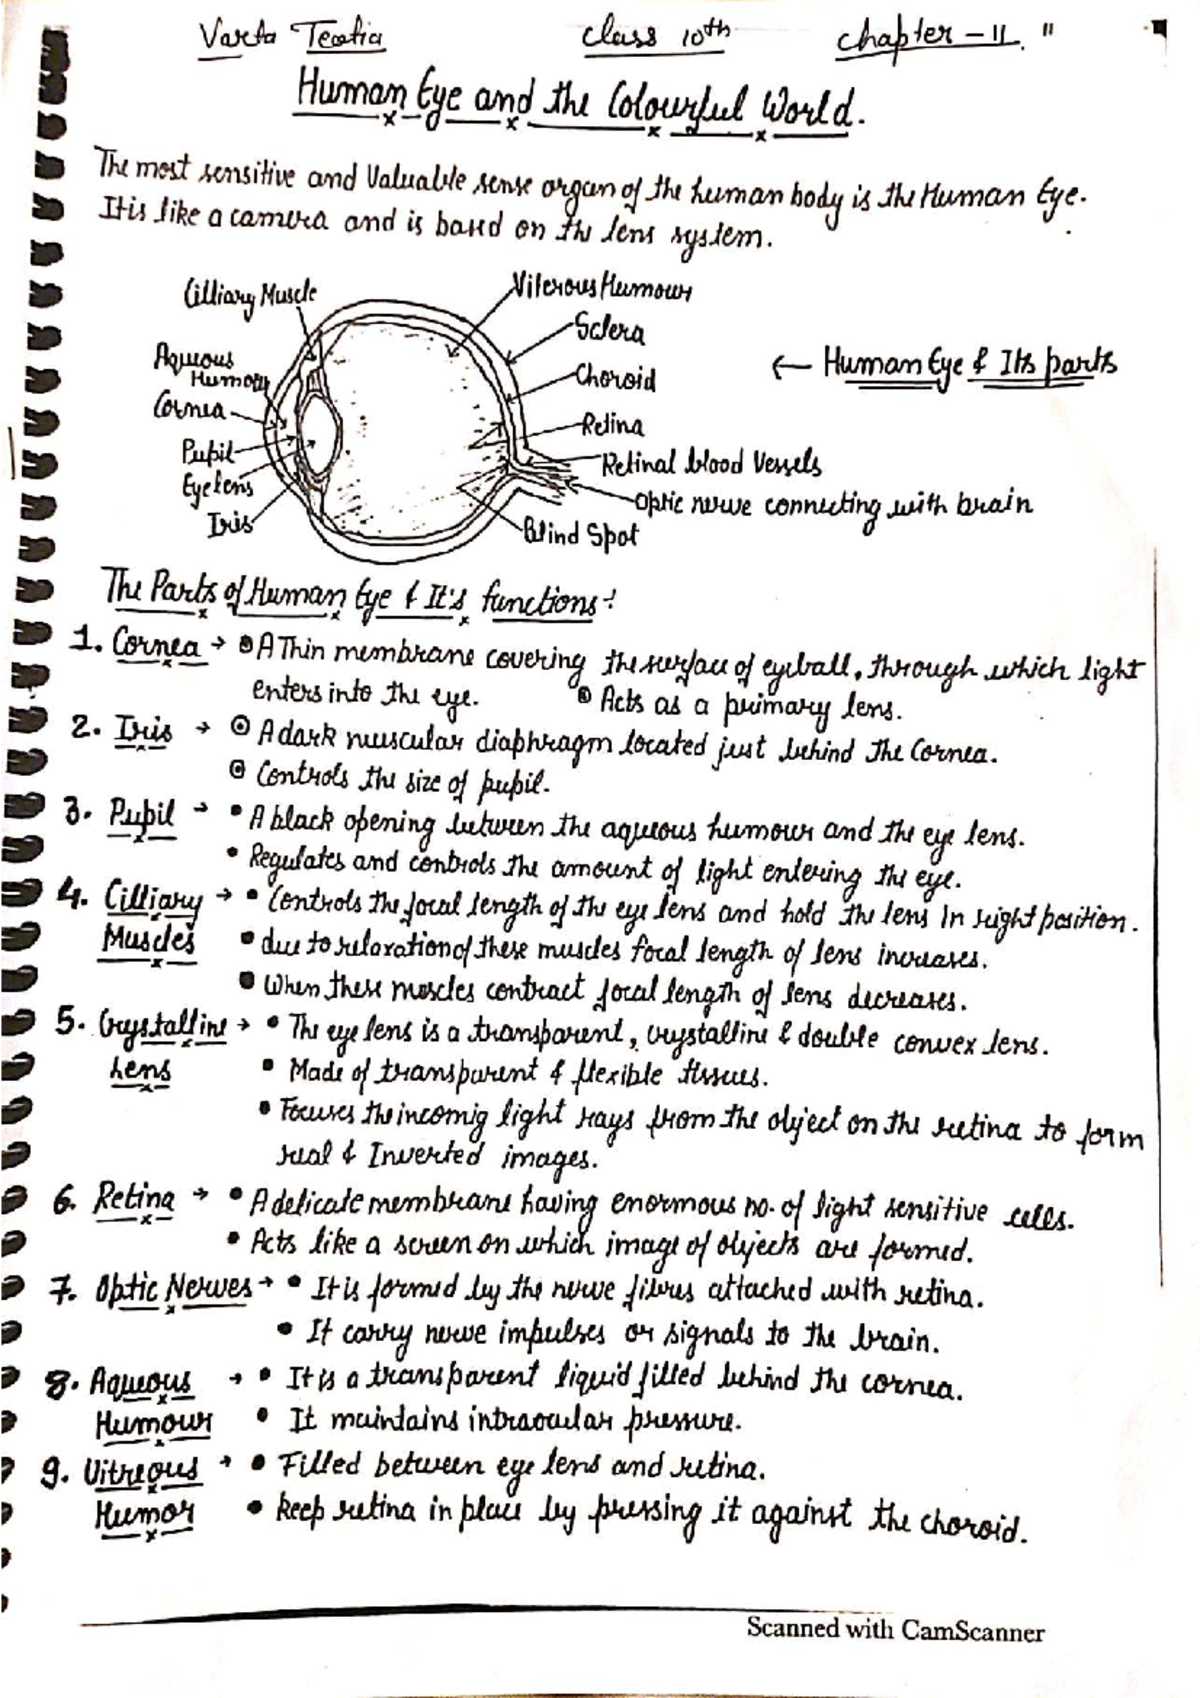 Varta Teotia Class 10th Chapter - 11 "
Human Eye and the Colourful World.
The most sensitive and Valuable sense organ of the human body is the Human Eye.
It is like a camera and is based on the lens system.
Cilliary Muscle
Viterous Humour
Sclera
Aqueous
Humour
Choroid
← Human Eye & Its parts
Cornea
Retina
Pupil
Retinal blood Vessels
Eye lens
Optic nerve connecting with brain
Iris
Blind Spot
The Parts of Human Eye & It's functions:
1. Cornea → A Thin membrane covering the surface of eyeball, through which light
enters into the eye. Acts as a primary lens.
2. Iris → A dark muscular diaphragm located just behind the Cornea.
Controls the size of pupil.
3. Pupil → • A black opening between the aqueous humour and the eye lens.
• Regulates and controls the amount of light entering the eye.
4. Cilliary → • Controls the focal length of the eye lens and hold the lens In right position.
Muscles • due to relaxation of these muscles focal length of lens increases.
• When these muscles contract focal length of lens decreases.
5. Crystalline → • The eye lens is a transparent, crystalline & double convex lens.
Lens • Made of transparent & flexible tissues.
• Focuses the incomig light rays from the object on the retina to form
real & Inverted images.
6. Retina → • A delicate membrane having enormous no. of light sensitive cells.
• Acts like a screen on which image of objects are formed.
7. Optic Nerves → • It is formed by the nerve fibres attached with retina.
• It carry nerve impulses or signals to the brain.
8. Aqueous → • It is a transparent liquid filled behind the cornea.
Humour • It maintains intraocular pressure.
9. Vitreous → • Filled between eye lens and retina.
Humor • keep retina in place by pressing it against the choroid.
Scanned with CamScanner